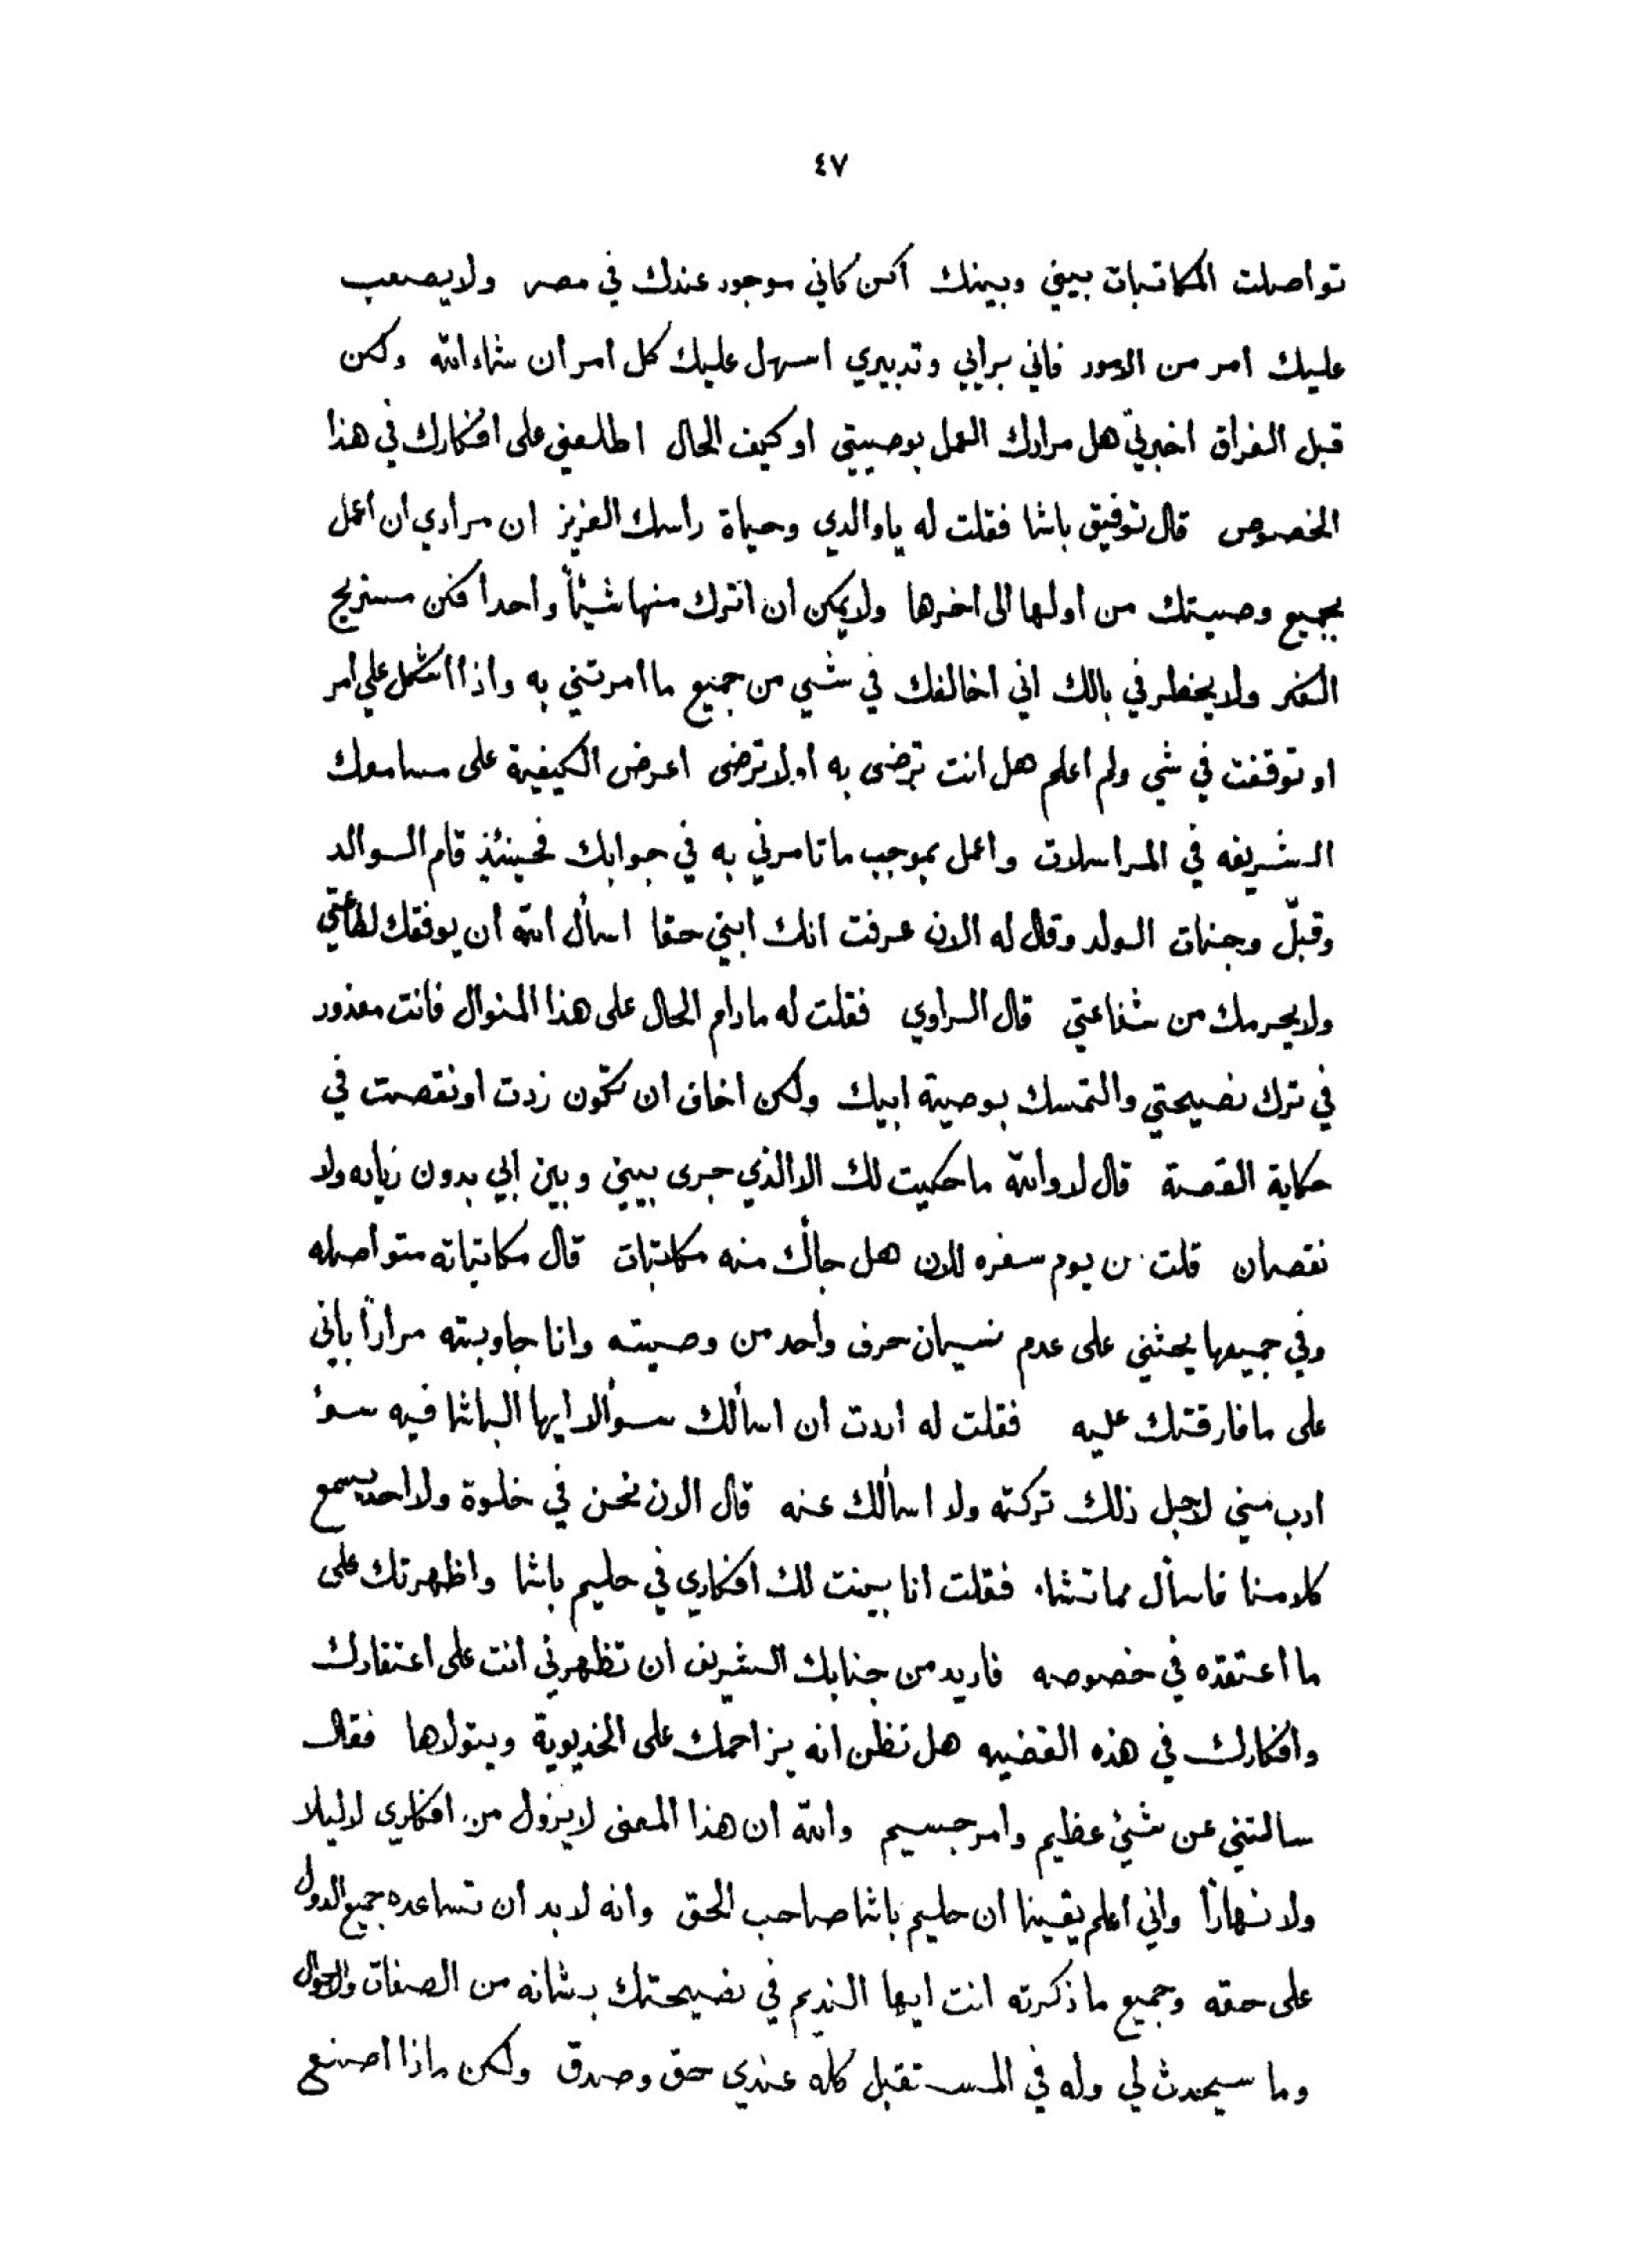 ٤٧
تواصلت المكاتبات بيني وبينك اكن كاني موجود عندك في مصر ولا يصعب
عليك امر من الامور فاني برايي وتدبيري اسهل عليك كل امر ان شاء الله ولكن
قبل الفراق اخبرني هل مرادك العمل بوصيتي او كيف الحال اطلعني على افكارك في هذا
الخصوص قال توفيق باشا فقلت له ياوالدي وحياة راسك العزيز ان مرادي ان اعمل
بجميع وصيتك من اولها الى اخرها ولا يمكن ان اترك منها شيئاً واحدا فكن مستريح
الفكر ولا يخطر في بالك اني اخالفك في شي من جميع ما امرتني به واذا اشكل علي امر
او توقفت في شي ولم اعلم هل انت ترضى به اولا ترضى اعرض الكيفية على مسامعك
الشريفه في المراسلات واعمل بموجب ما تامرني به في جوابك فحينئذ قام الوالد
وقبّل وجنات الولد وقال له الان عرفت انك ابني حقا اسأل الله ان يوفقك لطاعتي
ولا يحرمك من شفاعتي قال الراوي فقلت له مادام الحال على هذا المنوال فانت معذور
في ترك نصيحتي والتمسك بوصية ابيك ولكن اخاف ان تكون زدت او نقصت في
حكاية القصة قال لا والله ما حكيت لك الا الذي جرى بيني وبين ابي بدون زياده ولا
نقصان قلت من يوم سفره للان هل جاك منه مكاتبات قال مكاتباته متواصله
وفي جميعها يحثني على عدم نسيان حرف واحد من وصيته وانا جاوبته مراراً باني
على ما فارقتك عليه فقلت له اردت ان اسألك سؤالا ايها الباشا فيه سوء
ادب مني لاجل ذلك تركته ولا اسألك عنه قال الان نحن في خلوة ولا احد يسمع
كلامنا فاسأل مما تشاء فقلت انا بينت لك افكاري في حليم باشا واظهرتك على
ما اعتقده في خصوصه فاريد من جنابك الشريف ان تظهرني انت على اعتقادك
وافكارك في هذه القضيه هل تظن انه يزاحمك على الخديوية ويتولاها فقال
سالتني عن شيء عظيم وامر جسيم والله ان هذا المعنى لا يزول من افكاري لا ليلا
ولا نهاراً واني اعلم يقينا ان حليم باشا صاحب الحق وانه لا بد ان تساعده جميع الدول
على حقه وجميع ما ذكرته انت ايها النديم في نصيحتك بشانه من الصفات والاحوال
وما سيحدث لي وله في المستقبل كله عندي حق وصدق ولكن ماذا اصنع